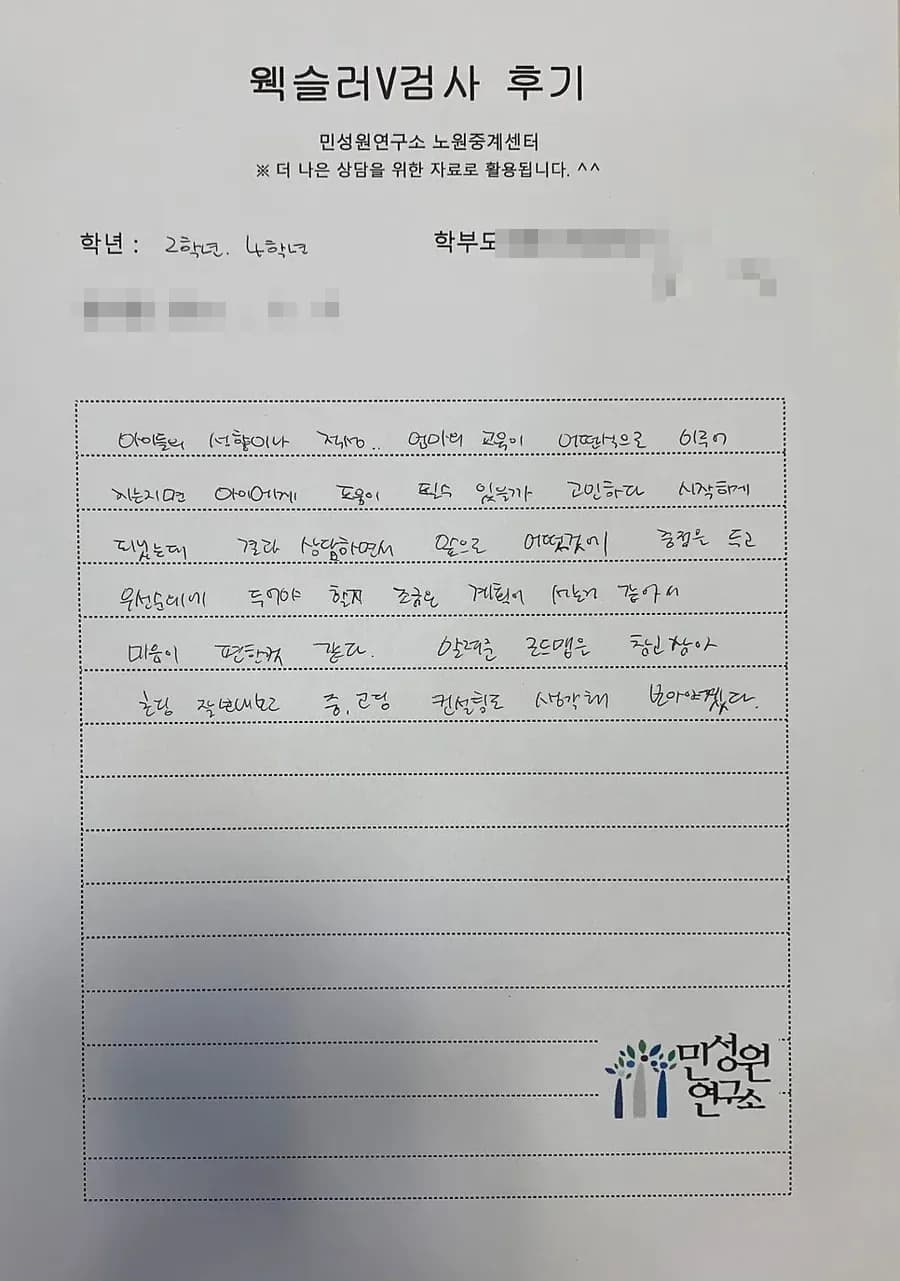 웩슬러V검사 후기
민성원연구소 노원중계센터
※ 더 나은 상담을 위한 자료로 활용됩니다. ^^
학년 : 2학년. 4학년
학부모
아이들의 성향이나 적성.. 엄마의 교육이 어떤식으로 이루어
지는지면 아이에게 도움이 될수 있을까 고민하다 시작하게
되었는데 결과 상담하면서 앞으로 어떤것에 중점을 두고
우선순위에 두어야 할지 조금은 계획이 서는거 같아서
마음이 편한것 같다. 알려준 로드맵은 참고삼아
초딩 잘보내보고 중, 고딩 컨설팅도 생각해 보아야겠다.
민성원
연구소